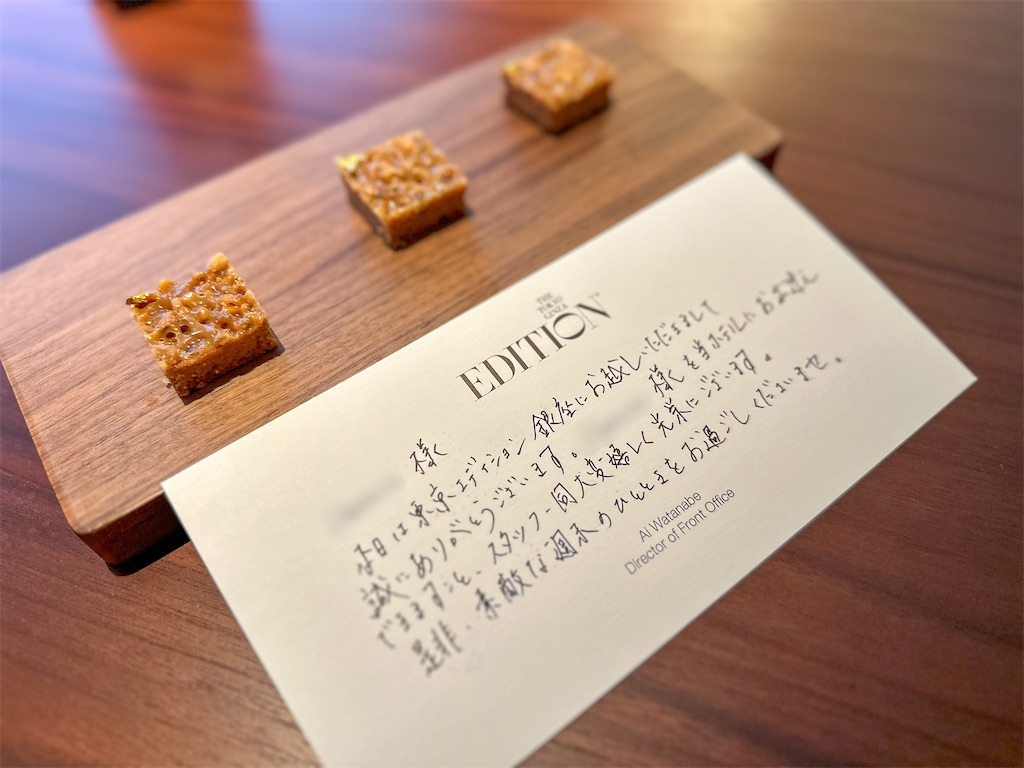 THE
TOKYO
GINZA
EDITION
様
本日は東京エディション銀座にお越しいただきまして
誠にありがとうございます。 様を当ホテルにお出迎え
できますこと、スタッフ一同大変嬉しく光栄にございます。
是非、素敵な週末のひとときをお過ごしくださいませ。
Ai Watanabe
Director of Front Office